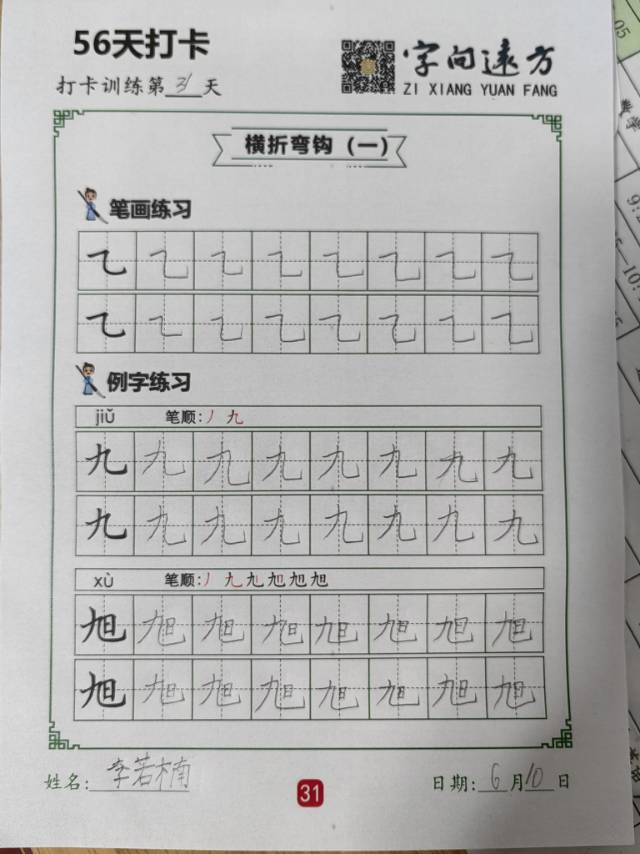 56天打卡
打卡训练第31天
字向遠方
ZI XIANG YUAN FANG
横折弯钩（一）
笔画练习
乙 乙 乙 乙 乙 乙 乙 乙
乙 乙 乙 乙 乙 乙 乙 乙
例字练习
jiǔ 笔顺:丿 九
九 九 九 九 九 九 九 九
九 九 九 九 九 九 九 九
xù 笔顺:丿 九 九 旭 旭 旭
旭 旭 旭 旭 旭 旭 旭 旭
旭 旭 旭 旭 旭 旭 旭 旭
姓名:李若楠
31
日期:6月10日